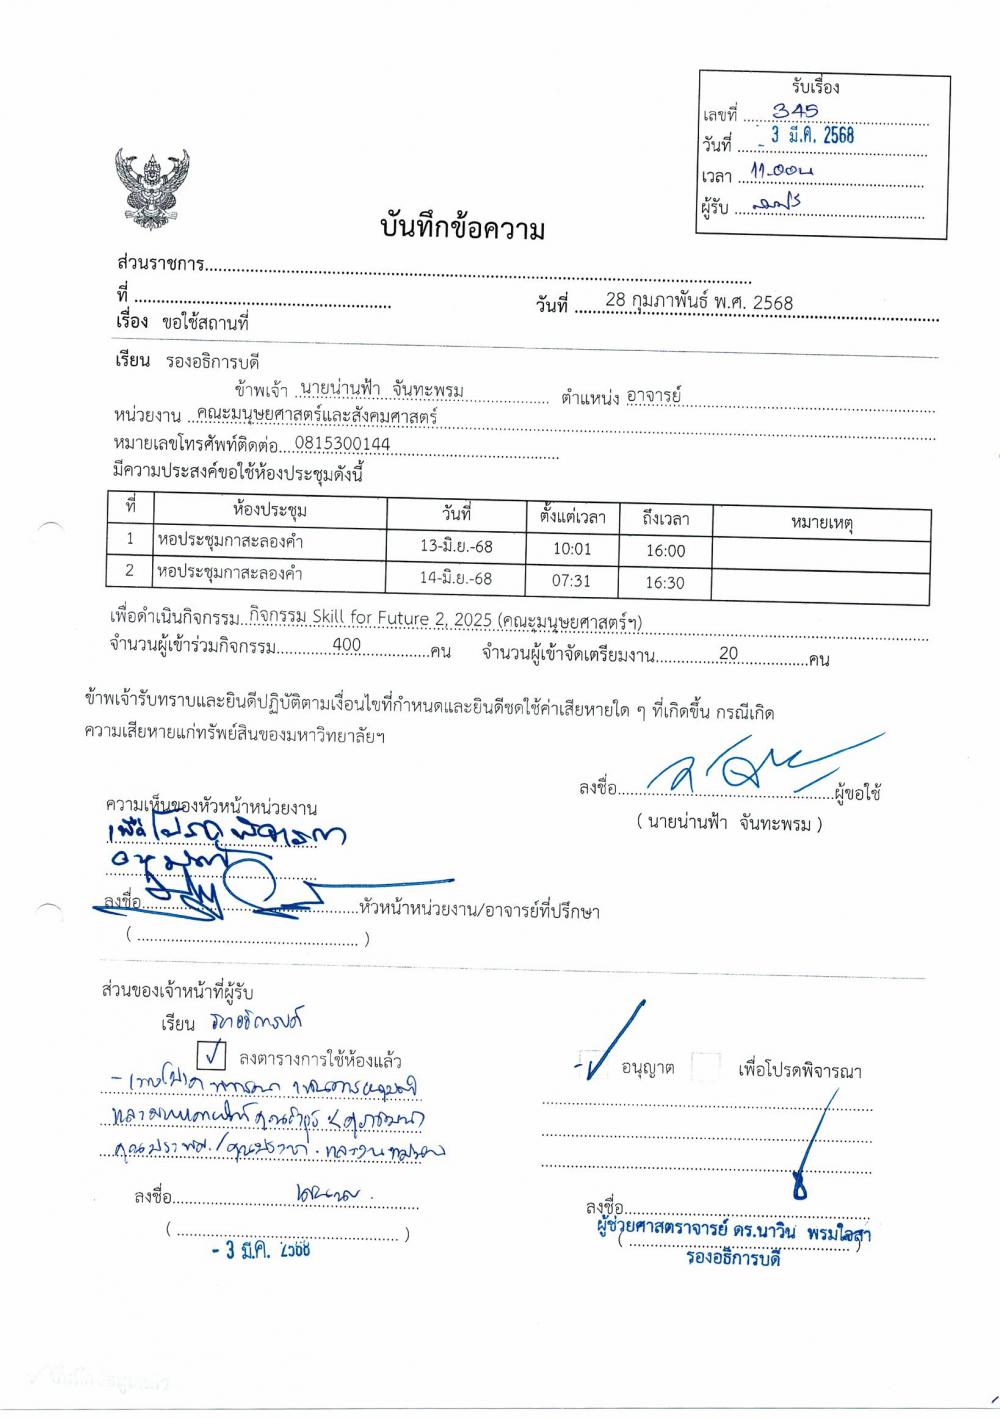 รับเรื่อง
เลขที่ 345
วันที่ - 3 มี.ค. 2568
เวลา 11.00น
ผู้รับ
บันทึกข้อความ
ส่วนราชการ
ที่ วันที่ 28 กุมภาพันธ์ พ.ศ. 2568
เรื่อง ขอใช้สถานที่
เรียน รองอธิการบดี
ข้าพเจ้า นายน่านฟ้า จันทะพรม ตำแหน่ง อาจารย์
หน่วยงาน คณะมนุษยศาสตร์และสังคมศาสตร์
หมายเลขโทรศัพท์ติดต่อ 0815300144
มีความประสงค์ขอใช้ห้องประชุมดังนี้
ที่ ห้องประชุม วันที่ ตั้งแต่เวลา ถึงเวลา หมายเหตุ
1 หอประชุมกาสะลองคำ 13-มิ.ย.-68 10:01 16:00
2 หอประชุมกาสะลองคำ 14-มิ.ย.-68 07:31 16:30
เพื่อดำเนินกิจกรรม กิจกรรม Skill for Future 2, 2025 (คณะมนุษยศาสตร์ฯ)
จำนวนผู้เข้าร่วมกิจกรรม 400 คน จำนวนผู้เข้าจัดเตรียมงาน 20 คน
ข้าพเจ้ารับทราบและยินดีปฏิบัติตามเงื่อนไขที่กำหนดและยินดีชดใช้ค่าเสียหายใด ๆ ที่เกิดขึ้น กรณีเกิด
ความเสียหายแก่ทรัพย์สินของมหาวิทยาลัยฯ
ลงชื่อ ผู้ขอใช้
( นายน่านฟ้า จันทะพรม )
ความเห็นของหัวหน้าหน่วยงาน
เพื่อโปรดพิจารณา
อนุญาต
ลงชื่อ หัวหน้าหน่วยงาน/อาจารย์ที่ปรึกษา
ส่วนของเจ้าหน้าที่ผู้รับ
เรียน รองอธิการบดี
ลงตารางการใช้ห้องแล้ว
อนุญาต เพื่อโปรดพิจารณา
ลงชื่อ
- 3 มี.ค. 2568
ลงชื่อ
ผู้ช่วยศาสตราจารย์ ดร.นาวิน พรมใจสา
รองอธิการบดี